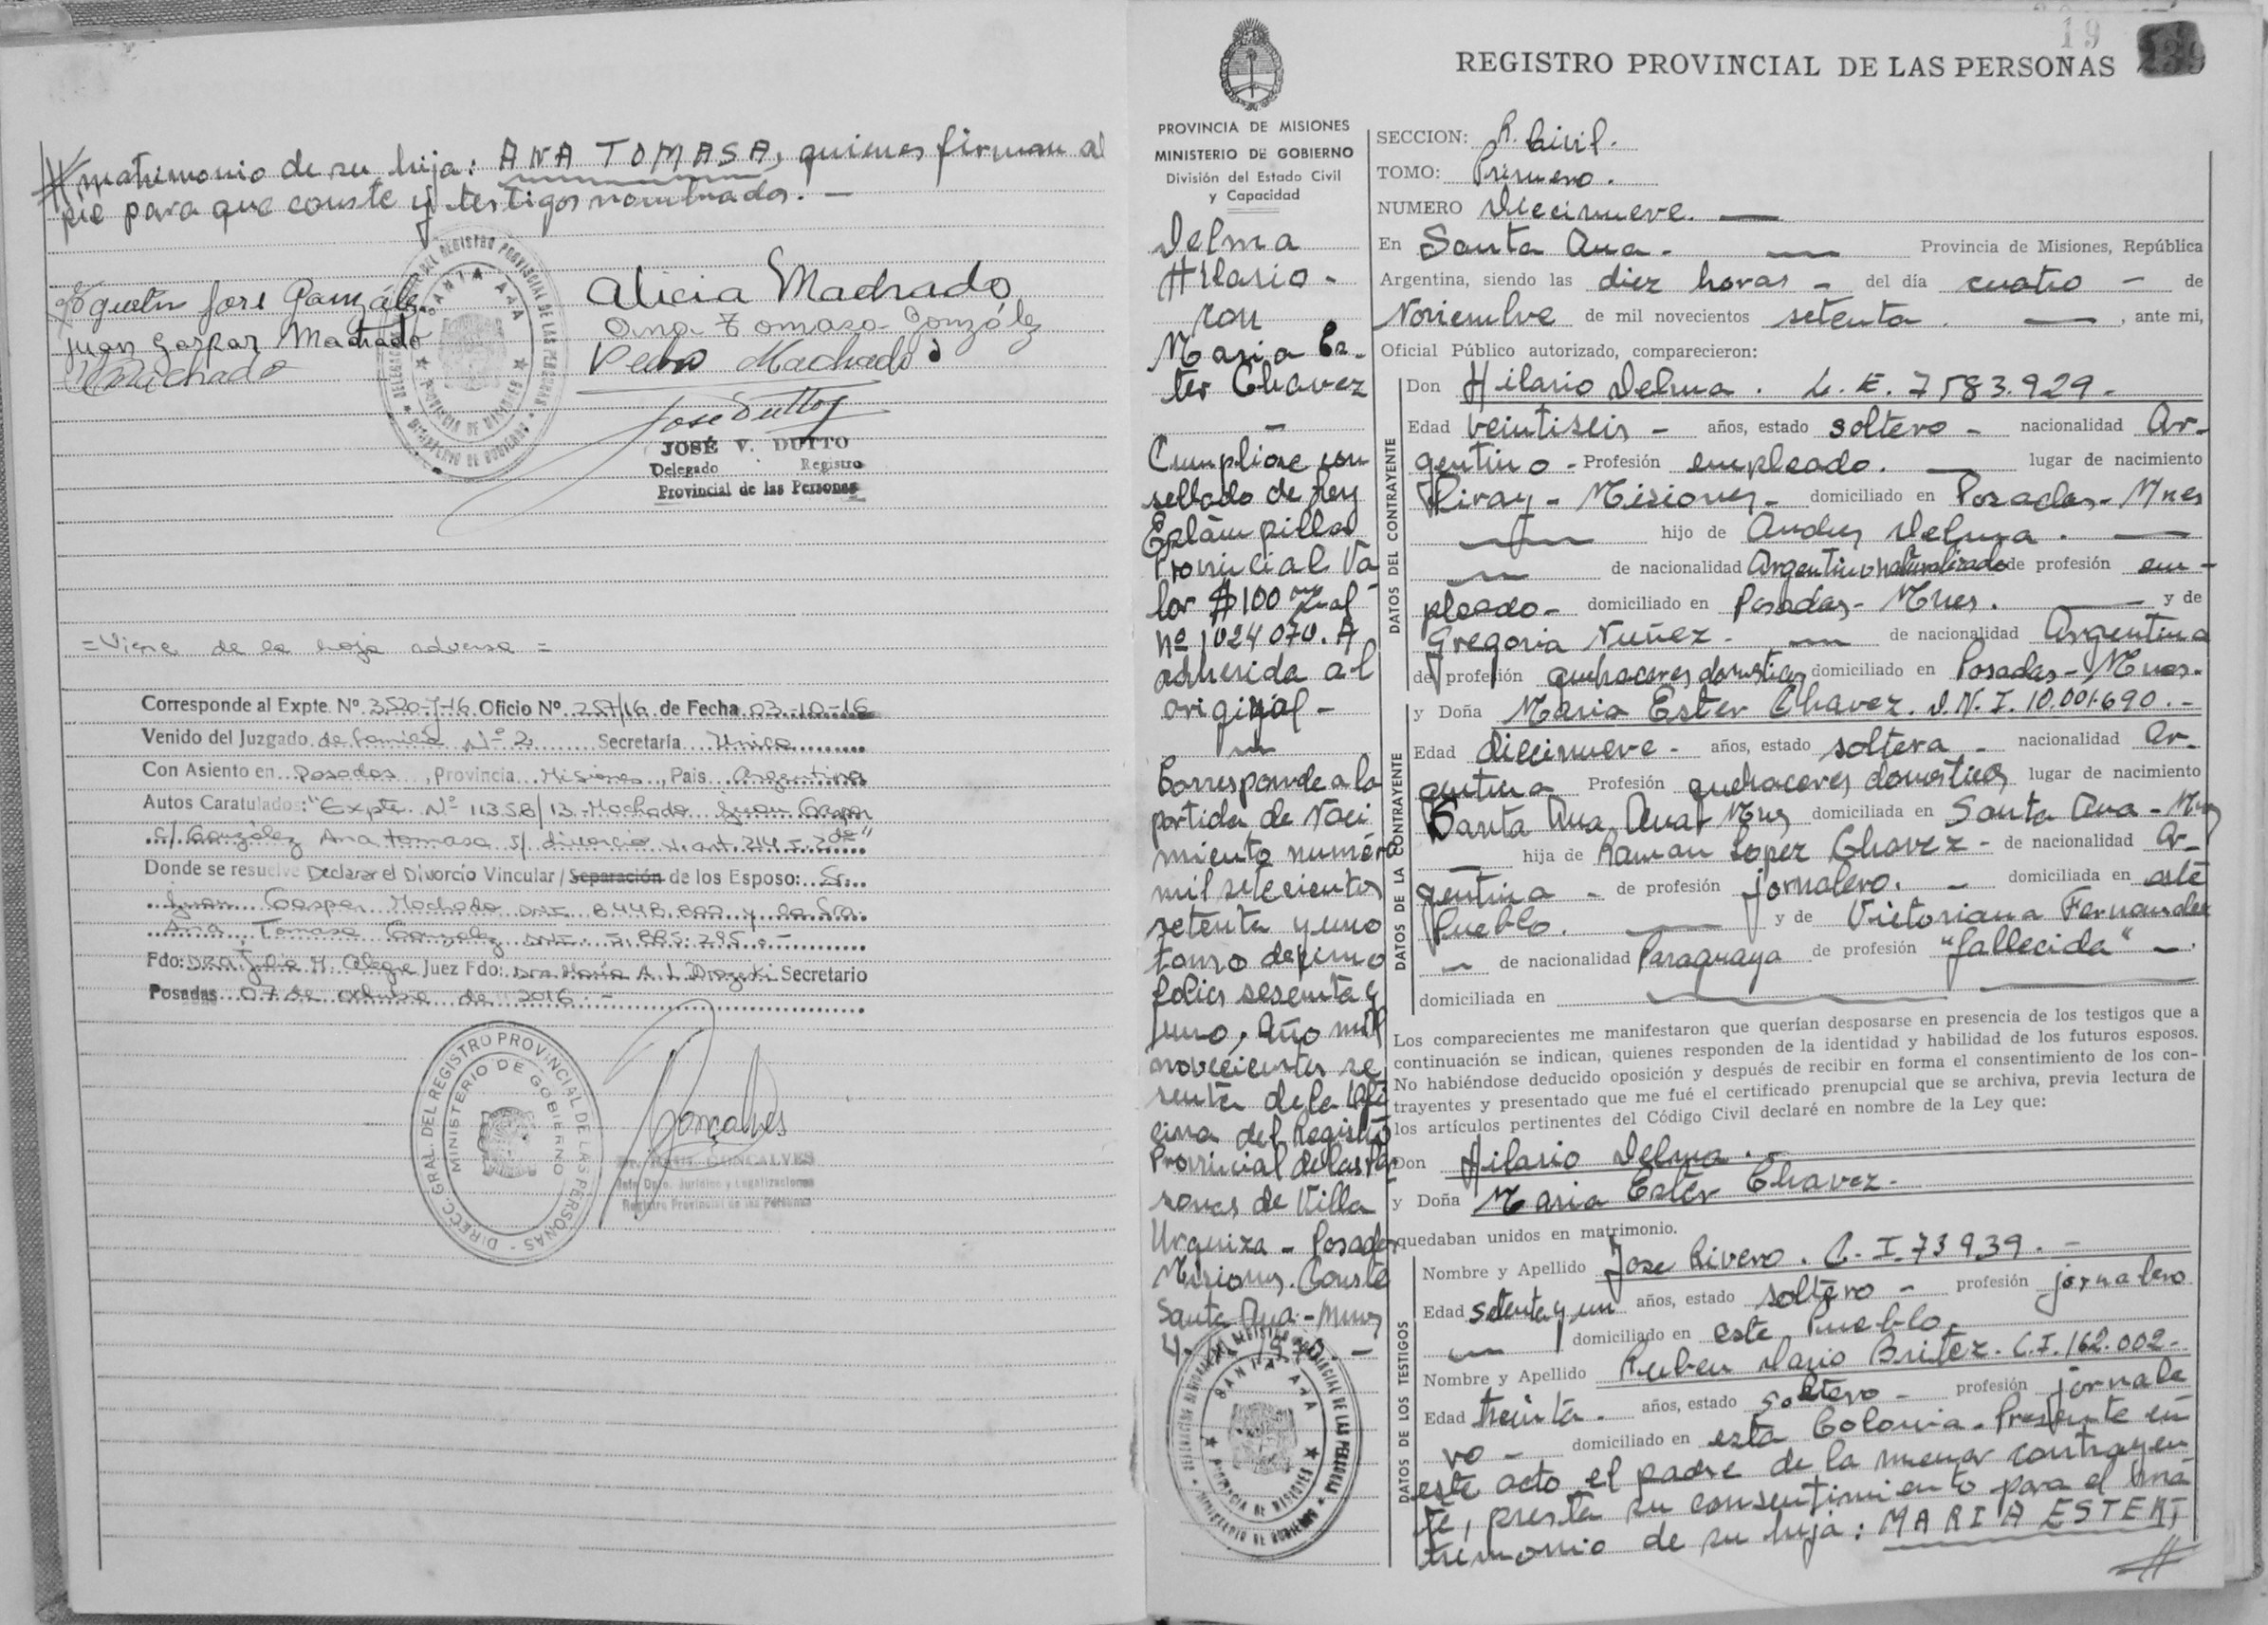 matrimonio de su hija: ANA TOMASA, quienes firman al
pie para que conste y testigos nombrados. —
Agustin José González
Juan Gaspar Machado
Machado
Alicia Machado
Ana Tomasa González
Pedro Machado
José Dutto
JOSÉ V. DUTTO
Delegado Registro
Provincial de las Personas
DEL REGISTRO PROVINCIAL DE LAS PERSONAS
SANTA ANA
PROVINCIA DE MISIONES
MINISTERIO DE GOBIERNO
= Viene de la hoja adversa =
Corresponde al Expte. Nº 3520-J-16 Oficio Nº 257/16 de Fecha 03-10-16
Venido del Juzgado de Familia Nº 2 Secretaría Unica
Con Asiento en Posadas, Provincia Misiones, Pais Argentina
Autos Caratulados: "Expte. Nº 11358/13 Machado Juan Gaspar
c/ González Ana Tomasa s/ divorcio x art. 214 I. 2do"
Donde se resuelve Declarar el Divorcio Vincular / Separación de los Esposo: Sr.
Juan Gaspar Machado DNI 8.448.800 y la Sra.
Ana Tomasa González DNI 5.885.295.-
Fdo: Dra. Juez Fdo: Dra María A. L. Secretario
Posadas 07 de octubre de 2016.-
DIRECC. GRAL. DEL REGISTRO PROVINCIAL DE LAS PERSONAS
MINISTERIO DE GOBIERNO
Goncalves
GONCALVES
Jefe Dpto. Jurídico y Legalizaciones
Registro Provincial de las Personas
19
239
REGISTRO PROVINCIAL DE LAS PERSONAS
PROVINCIA DE MISIONES
MINISTERIO DE GOBIERNO
División del Estado Civil
y Capacidad
Delma
Hilario -
con
Maria Es-
ter Chavez
—
Cumpliose con
sellado de Ley
Estampilla
Provincial Va
lor $ 100
Nº 1024070. A
adherida al
original -
Corresponde a la
partida de Naci
miento numero
mil setecientos
setenta y uno
tomo decimo
folios sesenta y
uno, Año mil
novecientos se
senta de la Ofi
cina del Registro
Provincial de las Per
sonas de Villa
Urquiza - Posadas
Misiones. Conste
Santa Ana - Mnes
SANTA ANA
PROVINCIA DE MISIONES
MINISTERIO DE GOBIERNO
SECCION: R. Civil.
TOMO: Primero.
NUMERO Diecinueve. —
En Santa Ana. — Provincia de Misiones, República
Argentina, siendo las diez horas - del día cuatro - de
Noviembre de mil novecientos setenta. —, ante mi,
Oficial Público autorizado, comparecieron:
DATOS DEL CONTRAYENTE
Don Hilario Delma. L. E. 7583.929-
Edad veintiseis - años, estado soltero - nacionalidad Ar-
gentino - Profesión empleado. — lugar de nacimiento
Piray - Misiones - domiciliado en Posadas - Mnes
— hijo de Andres Delma. —
— de nacionalidad Argentino naturalizado de profesión em-
pleado - domiciliado en Posadas - Mnes. — y de
Gregoria Nuñez - — de nacionalidad Argentina
de profesión quehaceres domesticos domiciliado en Posadas - Mnes.
DATOS DE LA CONTRAYENTE
y Doña Maria Ester Chavez. D.N.I. 10.001.690. -
Edad diecinueve - años, estado soltera - nacionalidad Ar-
gentina Profesión quehaceres domesticos lugar de nacimiento
Santa Ana Ana - Mnes domiciliada en Santa Ana - Mnes
— hija de Raman Lopez Chavez - de nacionalidad Ar-
gentina - de profesión jornalero. - domiciliada en este
Pueblo. — y de Victoriana Fernandez
— de nacionalidad Paraguaya de profesión "fallecida" -
domiciliada en —
Los comparecientes me manifestaron que querían desposarse en presencia de los testigos que a
continuación se indican, quienes responden de la identidad y habilidad de los futuros esposos.
No habiéndose deducido oposición y después de recibir en forma el consentimiento de los con-
trayentes y presentado que me fué el certificado prenupcial que se archiva, previa lectura de
los artículos pertinentes del Código Civil declaré en nombre de la Ley que:
Don Hilario Delma. -
y Doña Maria Ester Chavez -
quedaban unidos en matrimonio.
DATOS DE LOS TESTIGOS
Nombre y Apellido Jose Rivero. C. I. 73939. -
Edad setenta y un años, estado soltero - profesión jornalero
— domiciliado en este Pueblo.
Nombre y Apellido Ruben Dario Britez. C.I. 162.002-
Edad treinta. años, estado soltero - profesión jornale
ro - domiciliado en esta Colonia. Presente en
este acto el padre de la menor contrayen
te, presta su consentimiento para el ma
trimonio de su hija: MARIA ESTER,